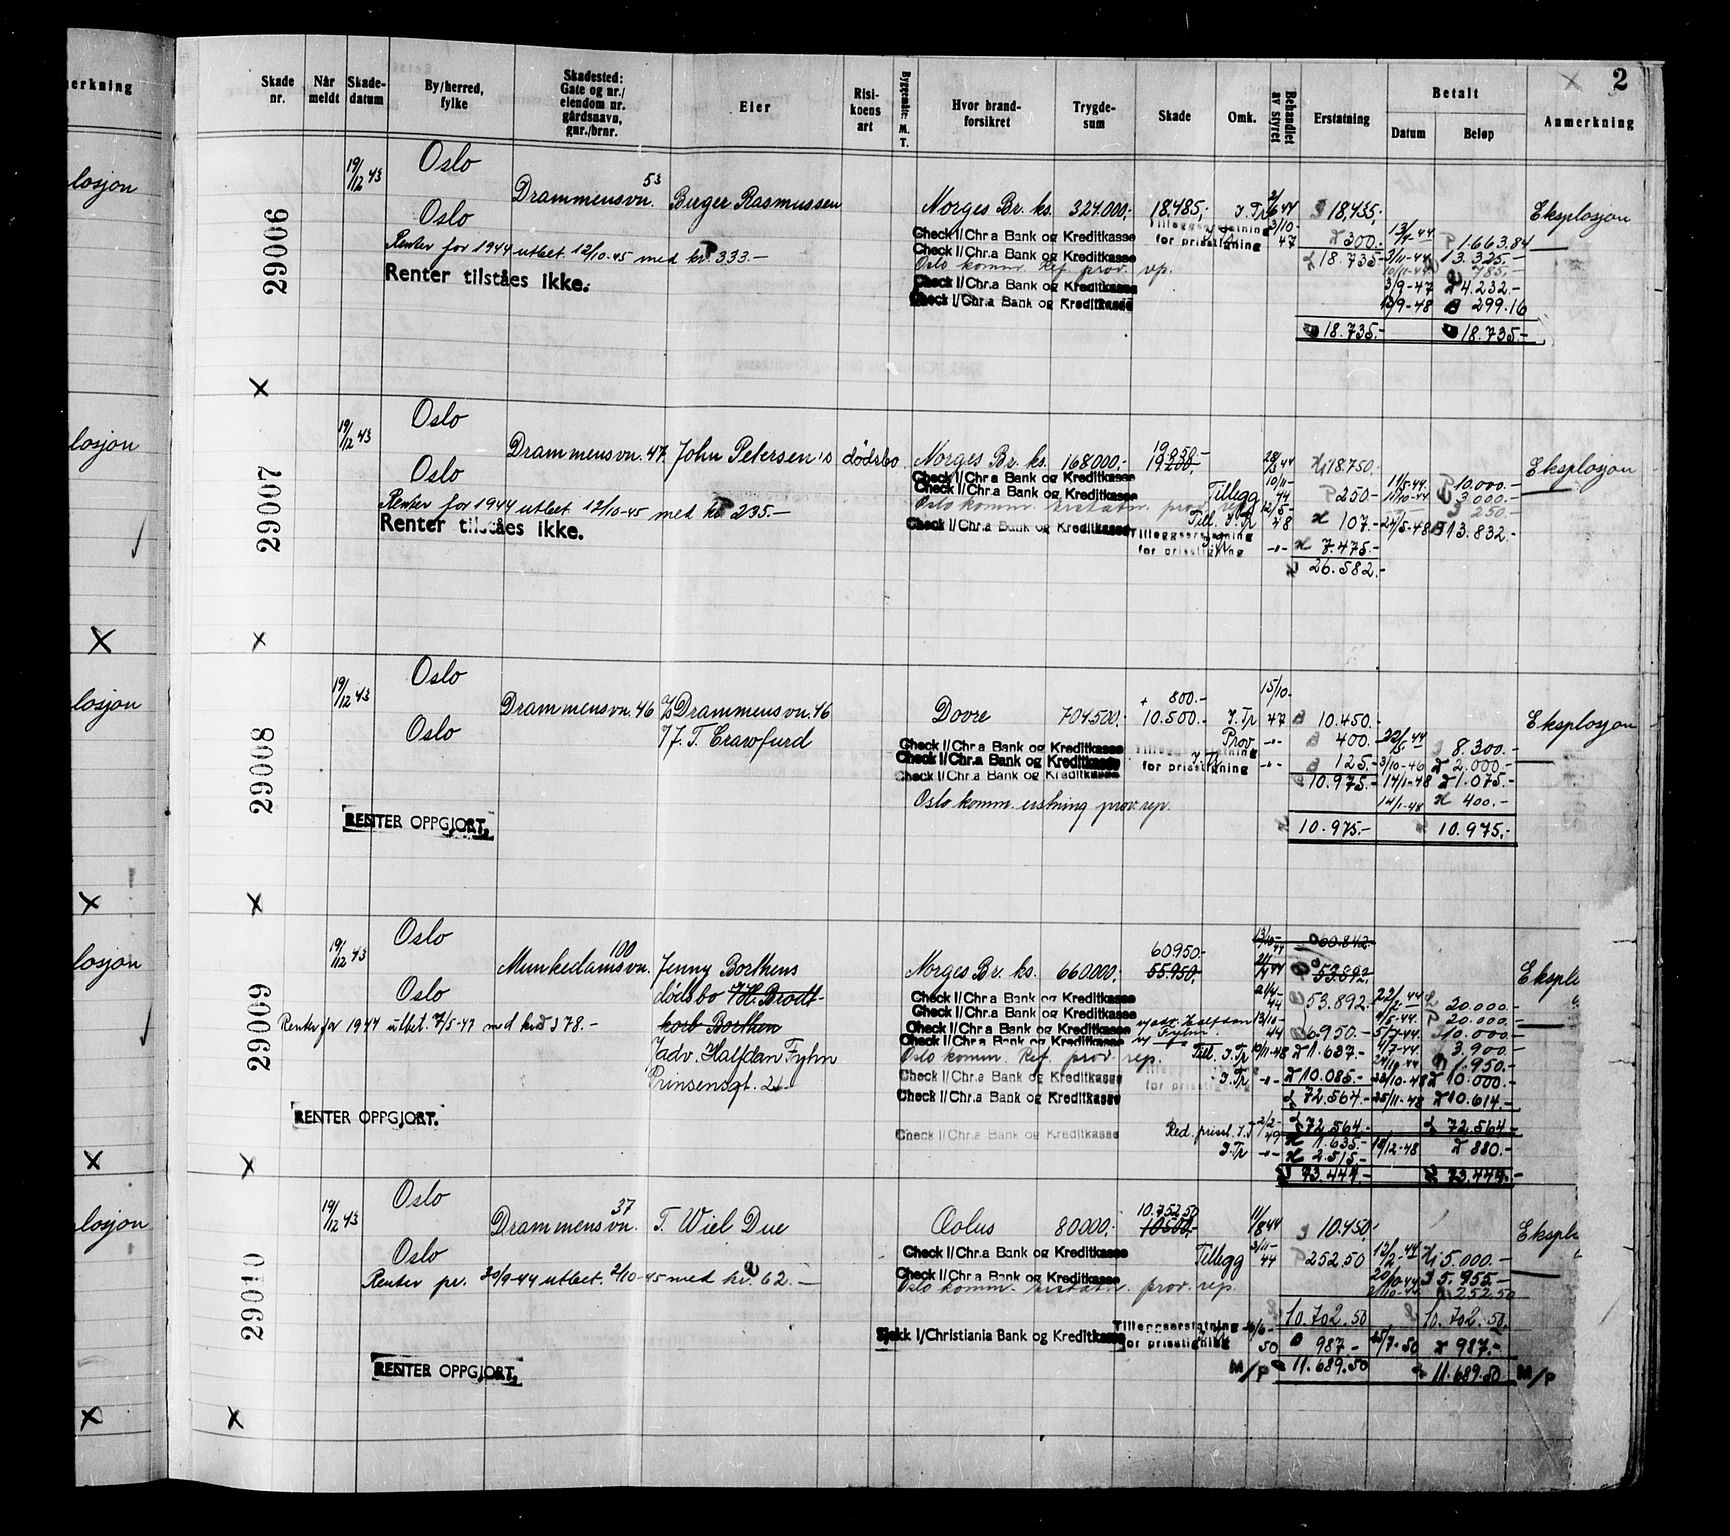 2
Skade nr. Når meldt Skade-datum By/herred, fylke Skadested: Gate og nr./ eiendom nr. gårdsnavn, gnr./brnr. Eier Risi-koens art Byggemåte: M. T. Hvor brand-forsikret Trygde-sum Skade Omk. Behandlet av styret Erstatning Betalt Datum Beløp Anmerkning
erkning
losjon
29006
19/12 43 Oslo
Drammensvn. 53 Birger Rasmussen Norges Br. ks. 324.000,- 18.485,- J.Tr 18.435,- Eksplosjon
Oslo
Check I/Chr.a Bank og Kreditkasse Tilleggserstatning for prisstigning 3/10-47 300.- 13/9-44 1.663.84
Renter for 1944 utbet 12/10-45 med kr. 333.-
Check I/Chr.a Bank og Kreditkasse 18.735.- 13.325.-
Oslo komm. Ref. prov. rep. 785.-
Renter tilståes ikke.
Check I/Chr.a Bank og Kreditkasse 3/9-47 4.232.-
Check I/Chr.a Bank og Kreditkasse 13/9-48 299.16
18.735.- 18.735.-
X
losjon
29007
19/12 43 Oslo
Drammensvn. 47 John Petersen's dødsbo Norges Br. ks. 168000.- 19.200.- 18.750.- Eksplosjon
Oslo
Check I/Chr.a Bank og Kreditkasse 10/11-44 11/5-44 10.000.-
Check I/Chr.a Bank og Kreditkasse Tillegg 250.- 11/10-44 3.000.-
Renter for 1944 utbet 12/10-45 med kr. 235.-
Oslo komm. erstatn. prov. rep. 12/5-48 250.-
Renter tilståes ikke.
Check I/Chr.a Bank og Kreditkasse Till. J.Tr 107.- 24/5-48 13.832.-
Tilleggserstatning for prisstigning -"- 7.475.-
26.582.-
X
X
losjon
29008
19/12 43 Oslo
Drammensvn. 46 A/S Drammensvn. 46 Dovre 704.500.- + 800.- 10.500.- J.Tr 15/10-47 10.450.- Eksplosjon
Oslo
v/ J. T. Crawfurd
Check I/Chr.a Bank og Kreditkasse Prov -"- 400.- 22/5-44 8.300.-
Check I/Chr.a Bank og Kreditkasse Tilleggserstatning for prisstigning J.Tr -"- 125.- 3/10-46 2.000.-
Check I/Chr.a Bank og Kreditkasse 10.975.- 14/1-48 1.075.-
Oslo komm. erstning prov. rep. 14/1-48 400.-
RENTER OPPGJORT.
10.975.- 10.975.-
X
X
losjon
29009
19/12 43 Oslo
60950.- 60.842.-
Munkedamsvn. 100 Jenny Borthens Norges Br. ks. 660.000.- 55.950.- 53.892.- Ekspl
Oslo
dødsbo v/H. Brodt-
Check I/Chr.a Bank og Kreditkasse 53.892.- 20.000.-
Renter for 1944 utbet. 7/5-47 med kr. 378.-
korb Borthen
Check I/Chr.a Bank og Kreditkasse 20.000.-
Check I/Chr.a Bank og Kreditkasse v/adv. Halfdan Fyhn 13/10-44 6.950.- 5/7-44 10.000.-
v/adv. Halfdan Fyhn
Check I/Chr.a Bank og Kreditkasse 3.900.-
Oslo komm. Ref. prov. rep. Till. J.Tr 19/11-48 1.637.- 1.950.-
Prinsensgt. 2
Check I/Chr.a Bank og Kreditkasse Tilleggserstatning for prisstigning J.Tr -"- 10.085.- 10.000.-
Check I/Chr.a Bank og Kreditkasse 72.564.- 25/11-48 10.614.-
RENTER OPPGJORT.
72.564.- 72.564.-
Check I/Chr.a Bank og Kreditkasse Red. prisst. J.T 2/2-49 1.635.- 18/12-48 880.-
J.Tr -"- 2.515.-
73.444.- 73.444.-
X
X
losjon
29010
19/12 43 Oslo
10.752,50
Drammensvn. 37 T. Wiel Due Æolus 80.000.- 10500.- 11/8 44 10.450,- Ekspl
Oslo
Check I/Chr.a Bank og Kreditkasse Tillegg 3/11-44 252.50 5.000.-
Renter pr. 30/9-44 utbet. 2/10-45 med kr. 62.-
Check I/Chr.a Bank og Kreditkasse 5.955.-
Oslo komm. erstatn. prov. rep. 252.50
10.702.50 10.702.50.
Sjekk I/Christiania Bank og Kreditkasse Tilleggserstatning for prisstigning 50 987.- 987.-
RENTER OPPGJORT.
M/P 11.689.50 11.689.50 M/P
X
X